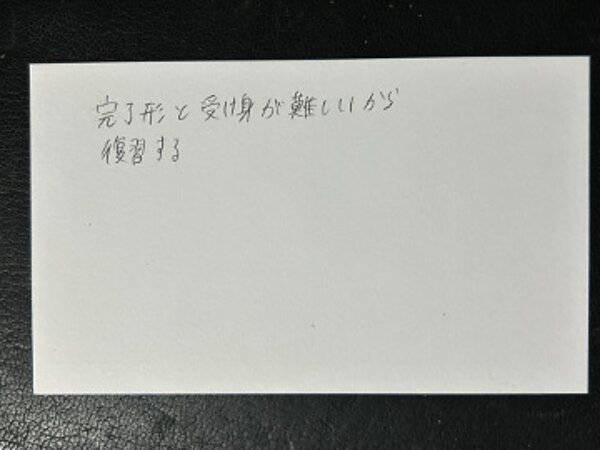 完了形と受け身が難しいから
復習する